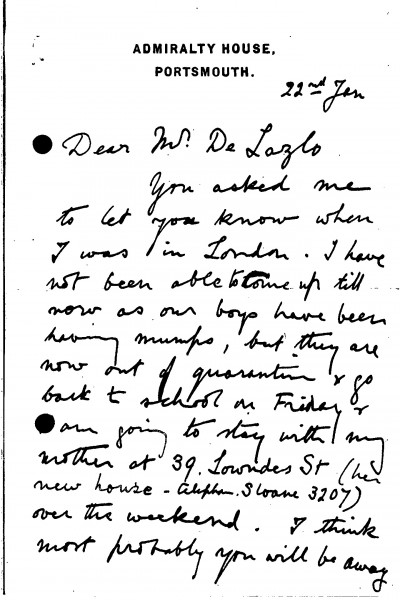 ADMIRALTY HOUSE,
PORTSMOUTH.
22nd Jan
Dear Mr. De Lazlo
You asked me
to let you know when
I was in London. I have
not been able to come up till
now as our boys have been
having mumps, but they are
now out of quarantine & go
back to school on Friday &
am going to stay with my
mother at 39. Lowndes St (her
new house - Sloane 3207)
over the weekend. I think
most probably you will be away